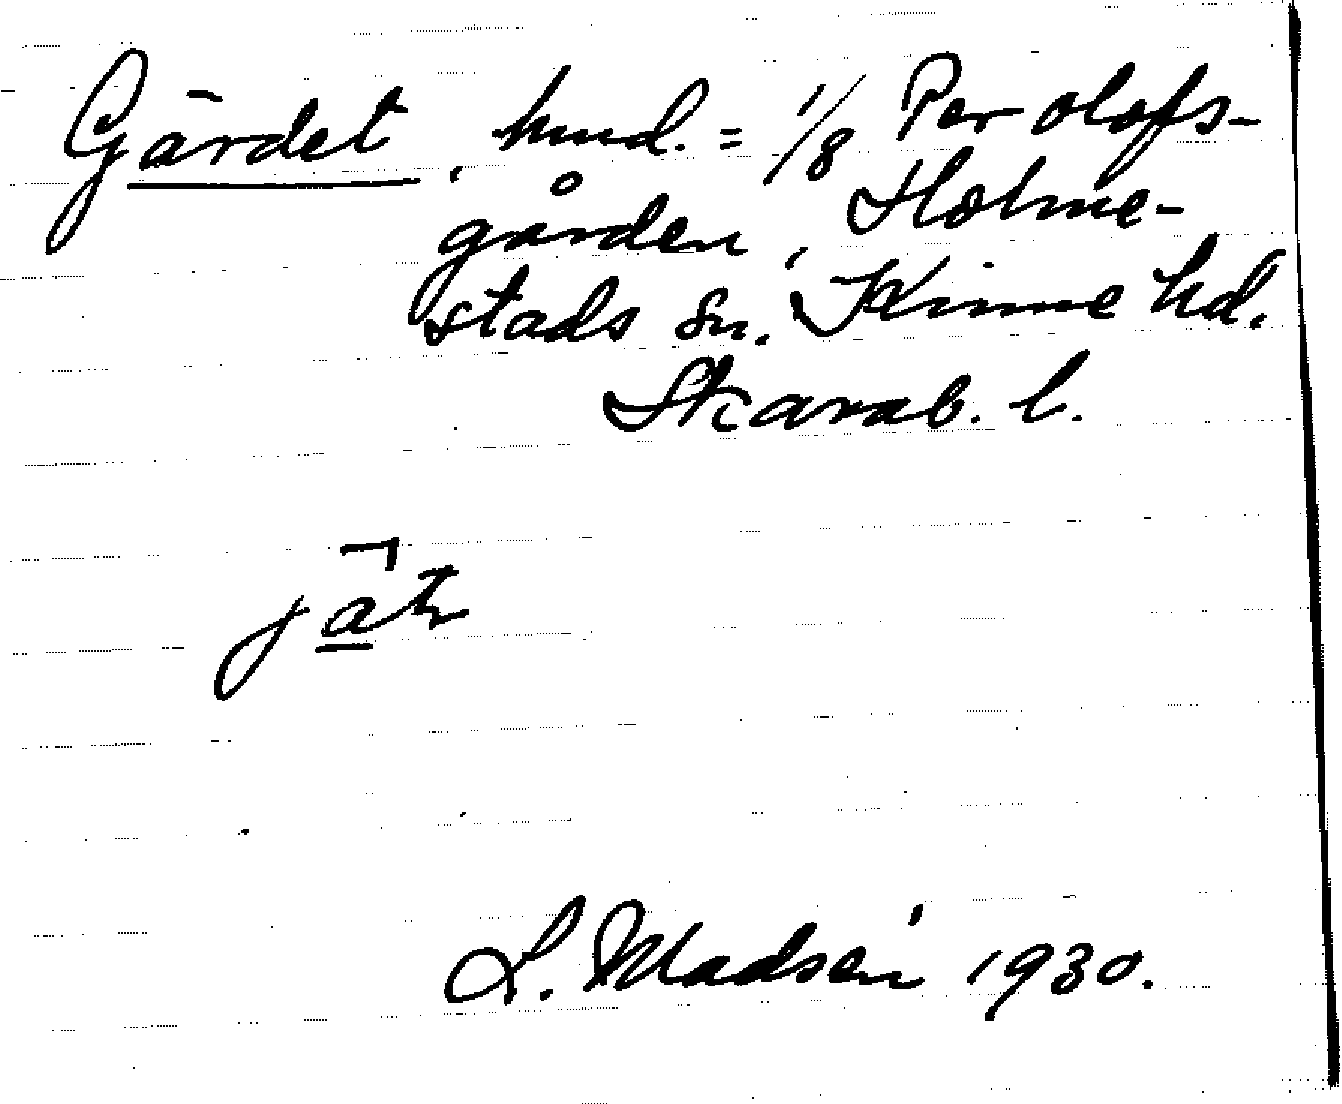 Gärdet, hmd. = 1/8 Per Olofs-
gården, Holme-
stads sn. Kinne hd.
Skarab. l.
L. Madsén 1930.